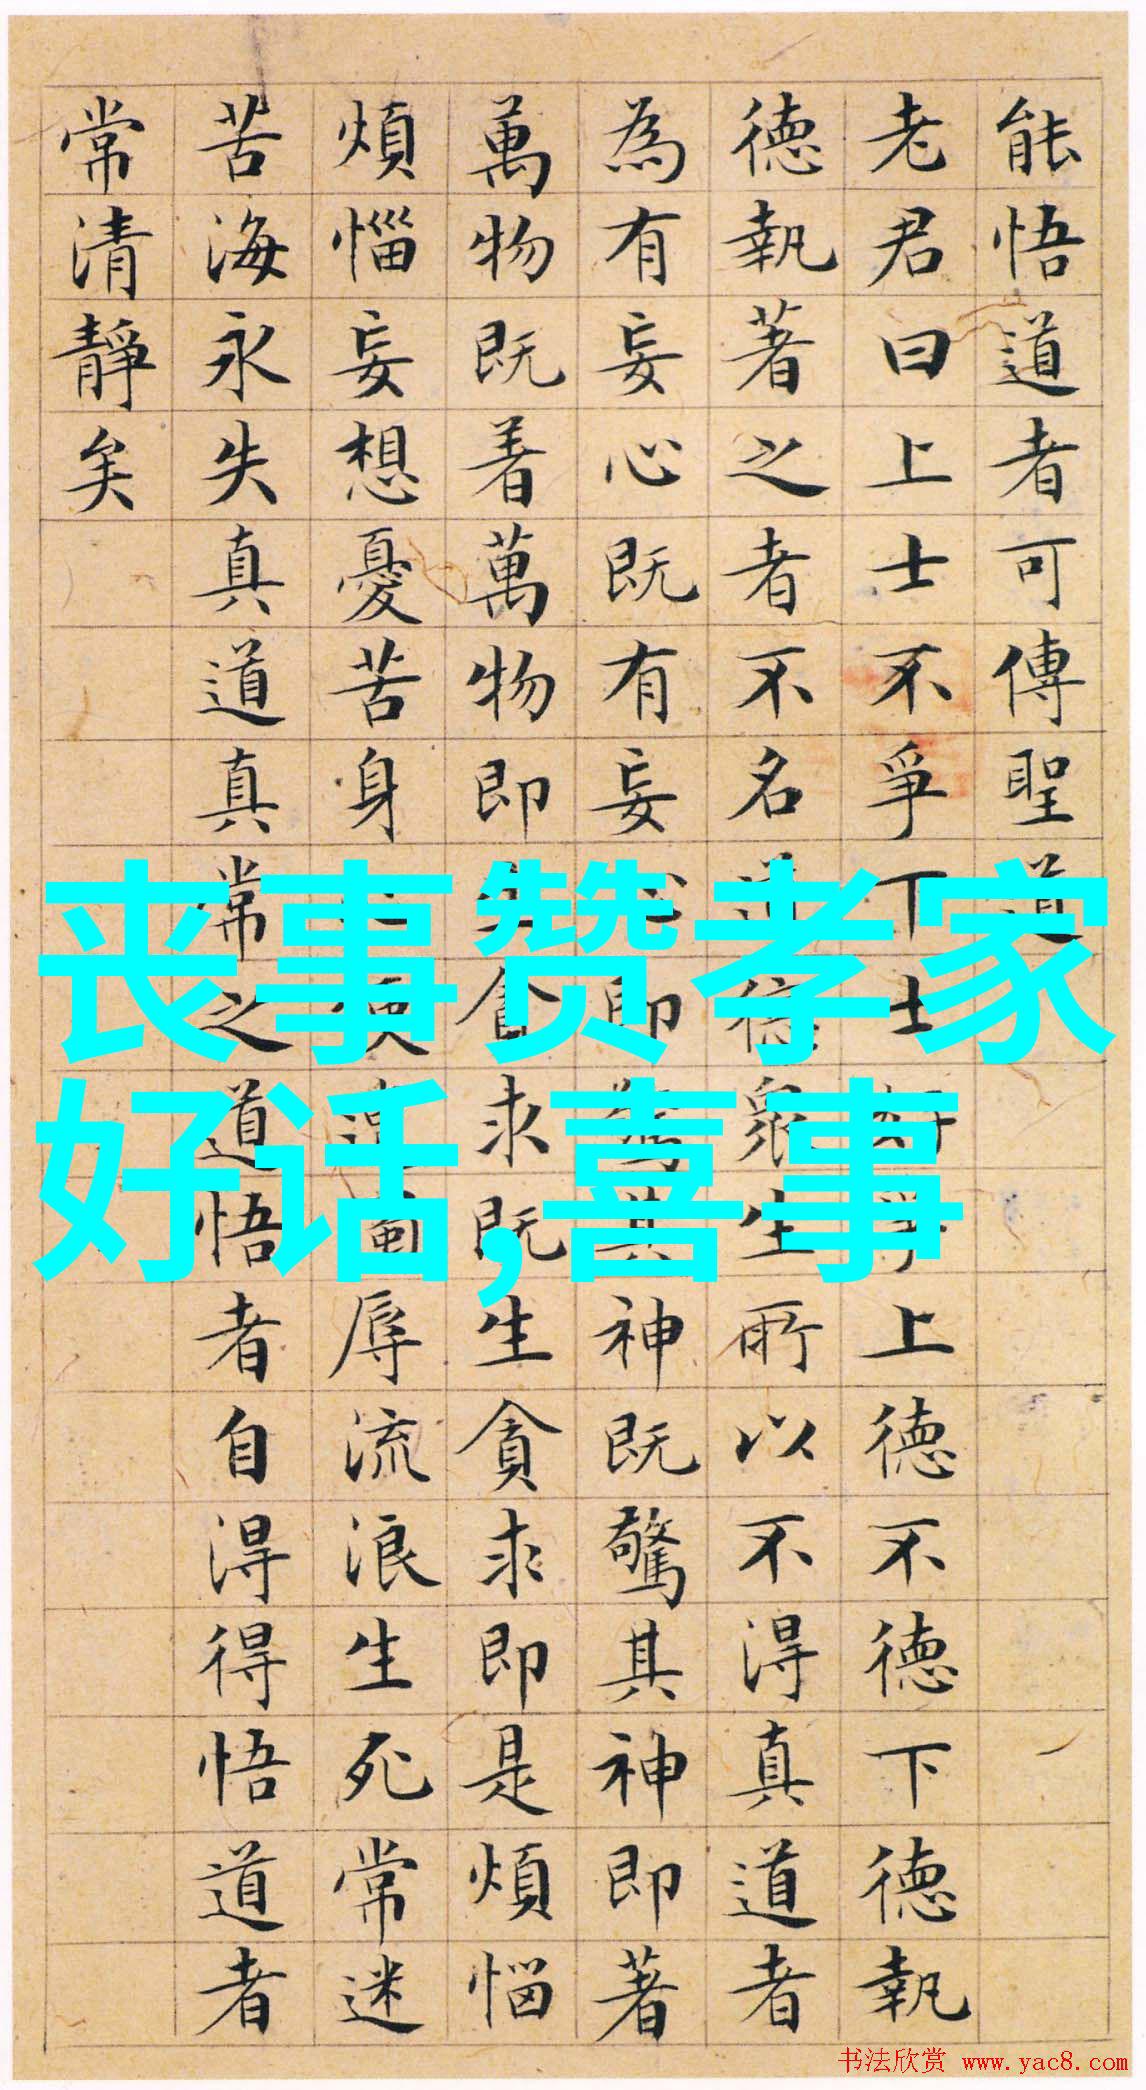 能悟道者可傳聖道
老君曰上士不爭下士爭上德不德下德執
德執著之者不名道德衆生所以不得真道者
為有妄心既有妄心即驚其神既驚其神即著
萬物既着萬物即生貪求既生貪求即是煩惱
煩惱妄想憂苦身便遭濁辱流浪生死常迷
苦海永失真道真常之道悟者自得得悟道者
常清靜矣
丧事赞孝家
好话,喜事
书法欣赏 www.yac8.com